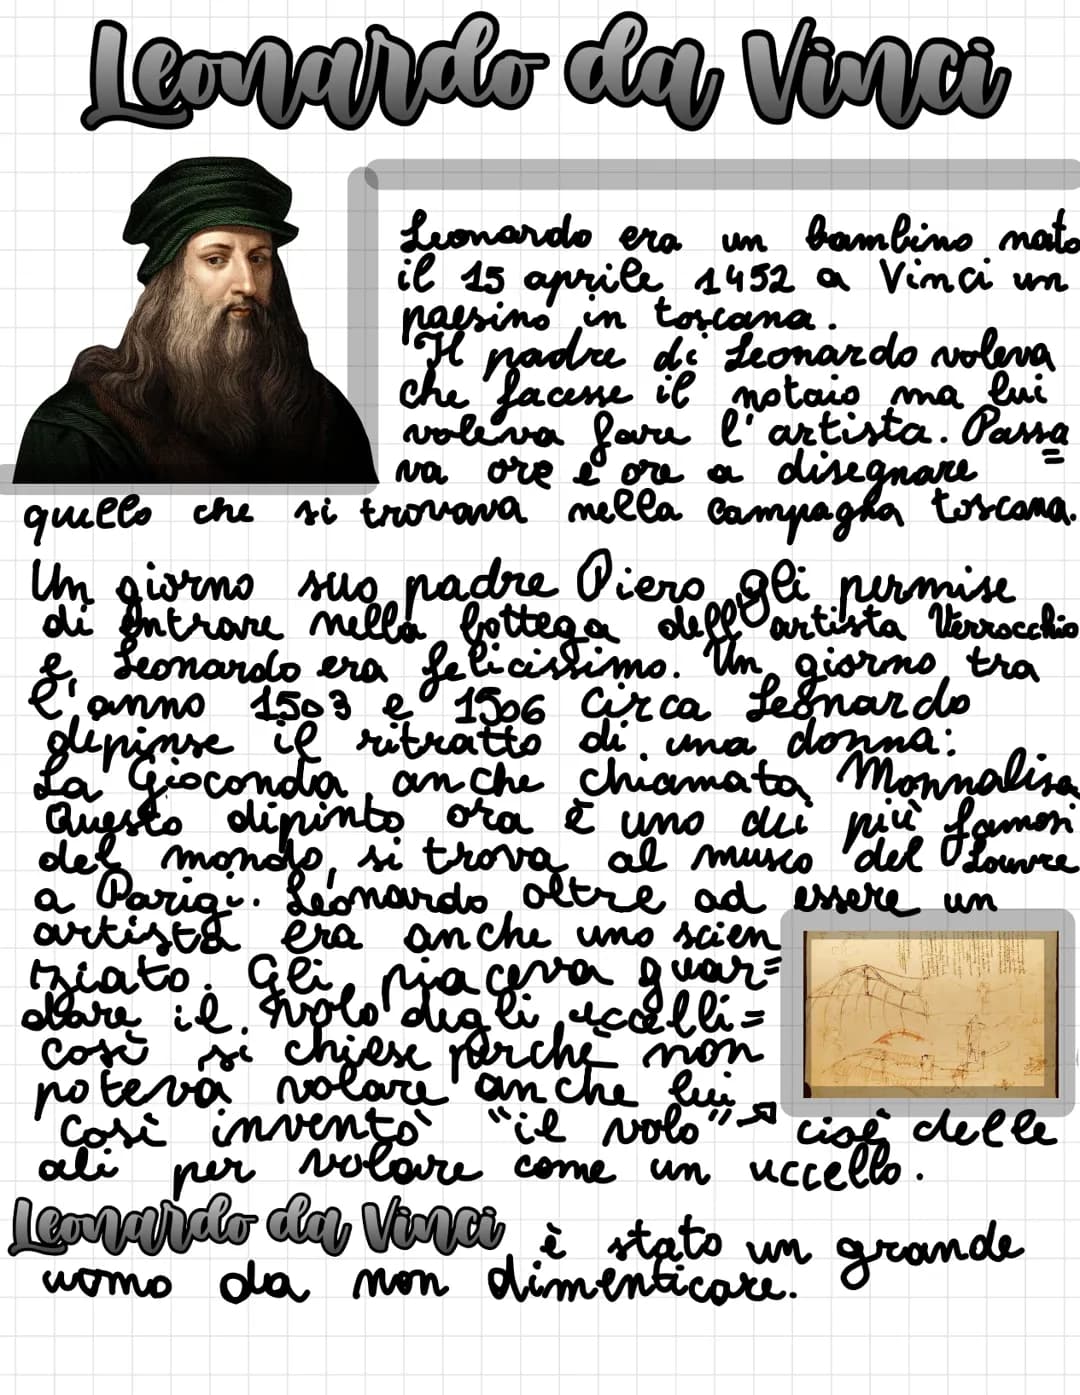 Leonardo da Vinci
Leonardo era un bambino nato
il 15 aprile 1452 a Vinci un
paesino in toscana.
Il padre di Leonardo voleva
che facesse il notaio ma lui
voleva fare l'artista. Passa
va ore e ore a disegnare =
quello che si trovava nella campagna toscana.
Un giorno suo padre Piero gli permise
di entrare nella bottega dell'artista Verrocchio
e Leonardo era felicissimo. Un giorno tra
l'anno 1503 e 1506 circa Leonardo
dipinse il ritratto di una donna:
La Gioconda anche chiamata Monnalisa
Questo dipinto ora è uno dei più famosi
del mondo, si trova al museo del Louvre
a Parigi. Leonardo oltre ad essere un
artista era anche uno scien
ziato. Gli piaceva guar=
dare il volo degli uccelli=
così si chiese perchè non
poteva volare anche lui
Così inventò "il volo" cioè delle
ali per volare come un uccello.
Leonardo da Vinci è stato un grande
uomo da non dimenticare.